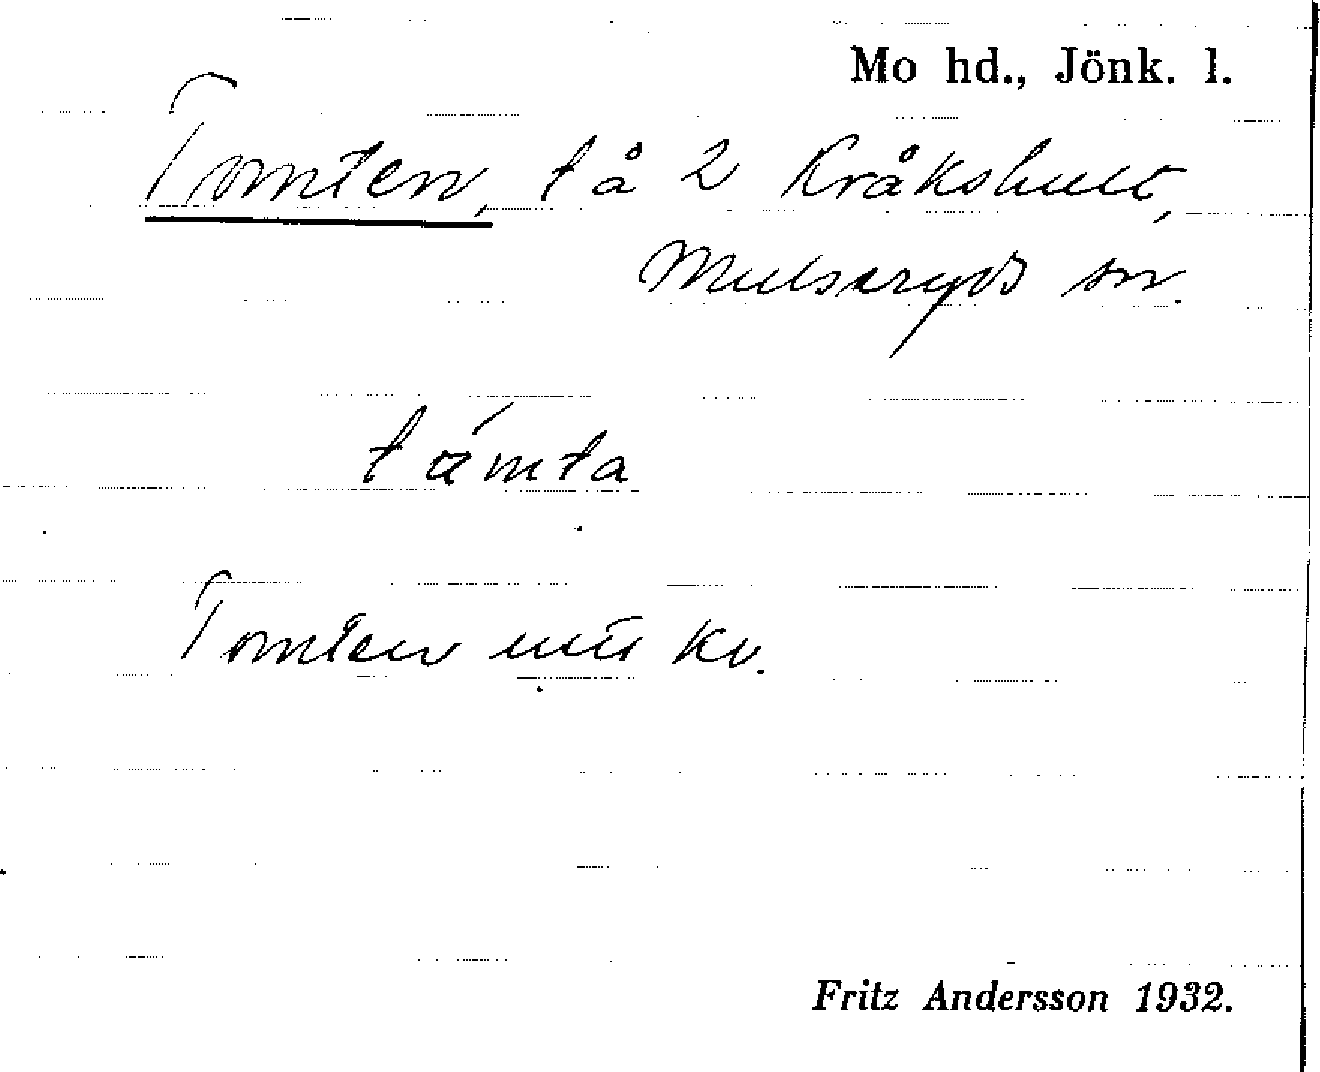 Mo hd., Jönk. l.
Tomten, tå 2 Kråkshult,
Mulseryds sn.
támta
Tomten
Fritz Andersson 1932.